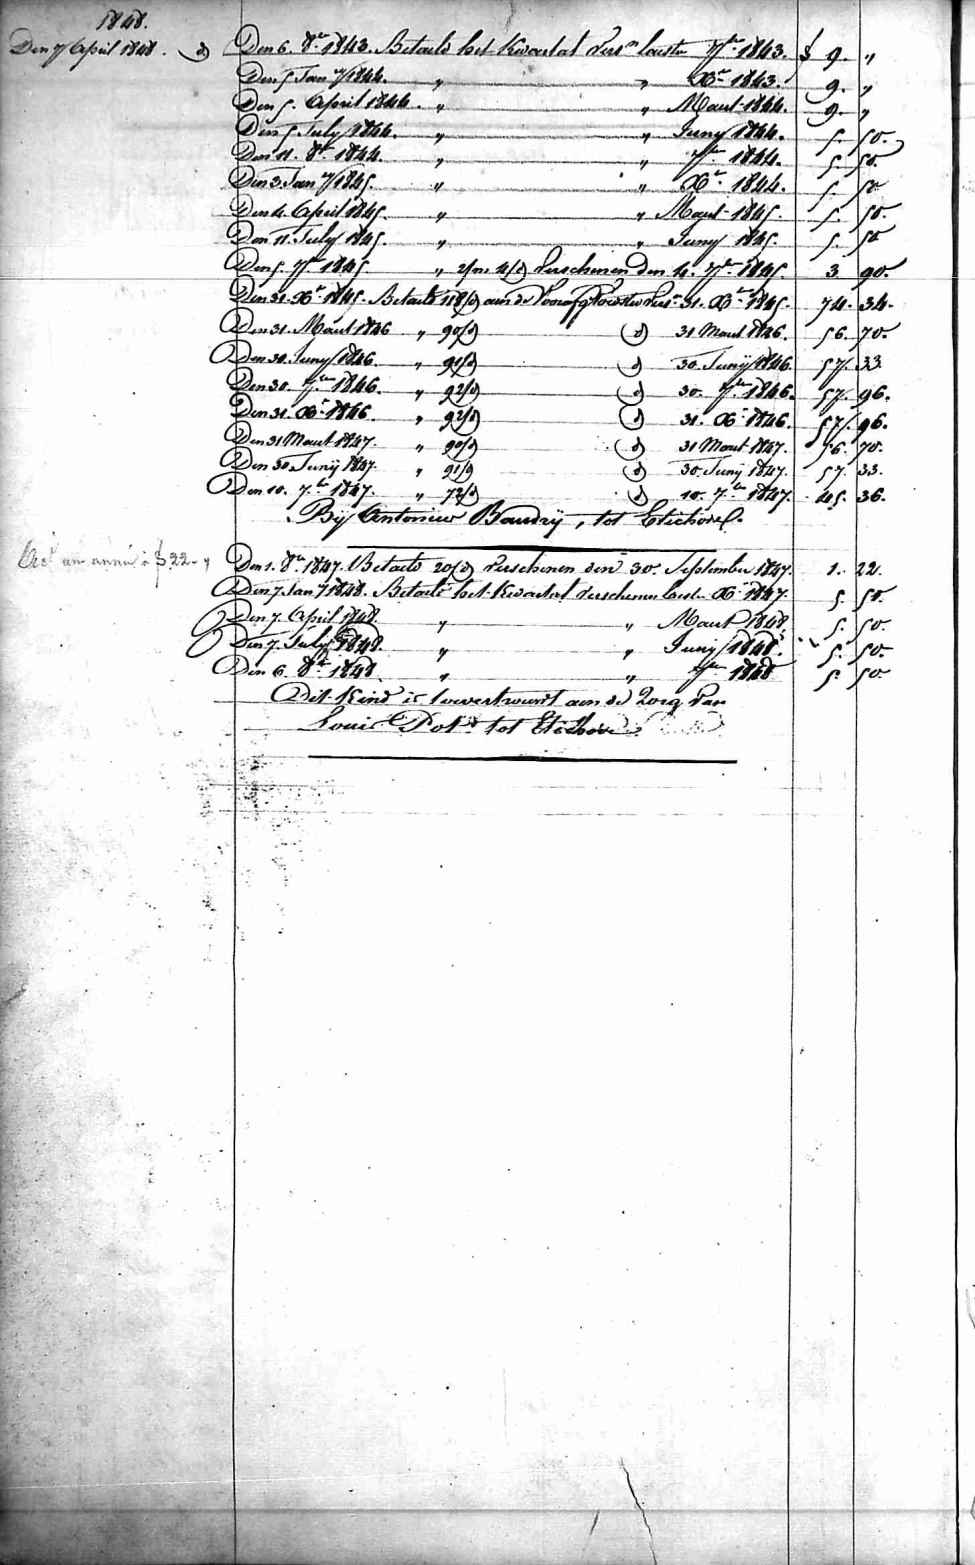 1848.
Den 7 April 1848. d)
Den 6. 8bre 1843. Betaeld het Kwartal Versn laeste 7bre 1843. f 9. „
Den 5 Jan y 1844. „ „ Xbre 1843. 9. „
Den 5. April 1844. „ „ Maert 1844. 9. „
Den 5 July 1844. „ „ Juny 1844. 5. 50.
Den 11. 8bre 1844. „ „ 7bre 1844. 5. 50.
Den 3. Jan y 1845. „ „ Xbre 1844. 5. 50
Den 4. April 1845. „ „ Maert 1845. 5. 50.
Den 11. July 1845. „ „ Juny 1845. 5. 50
Den 5. 7bre 1845. „ 2/m 4/d) Verschenen den 4. 7bre 1845. 3 90.
Den 31. Xbre 1845. Betaeld 118/d) aen de Vers 31. Xbre 1845. 74. 34.
Den 31. Maert 1846 „ 90/d) (d) 31 Maert 1846. 56. 70.
Den 30. Juny 1846. „ 91/d) (d) 30. Junij 1846. 57. 33
Den 30. 7bre 1846. „ 92/d) (d) 30. 7bre 1846. 57. 96.
Den 31. Xbre 1846. „ 92/d) (d) 31. Xbre 1846. 57. 96.
Den 31 Maert 1847. „ 90/d) (d) 31 Maert 1847. 56. 70.
Den 30. Junij 1847. „ 91/d) (d) 30. Junij 1847. 57. 33.
Den 10. 7bre 1847. „ 72/d) (d) 10. 7bre 1847. 45. 36.
Bij Antonius Baudrij, tot Etichove.
an année à f 22.
Den 1. 8bre 1847. Betaeld 20(d) Verschenen den 30. September 1847. 1. 22.
Den 7 Jan y 1848. Betaeld het Kwartal Verschenen laest Xbre 1847. 5. 50.
Den 7. April 1848. „ „ Maert 1848. 5. 50.
Den 7. July 1848. „ „ Junij 1848. 5. 50.
Den 6. 8bre 1848. „ „ 7bre 1848 5. 50
Dit Kind is toevertrouwt aen de Zorg van
Louis tot Etichove.